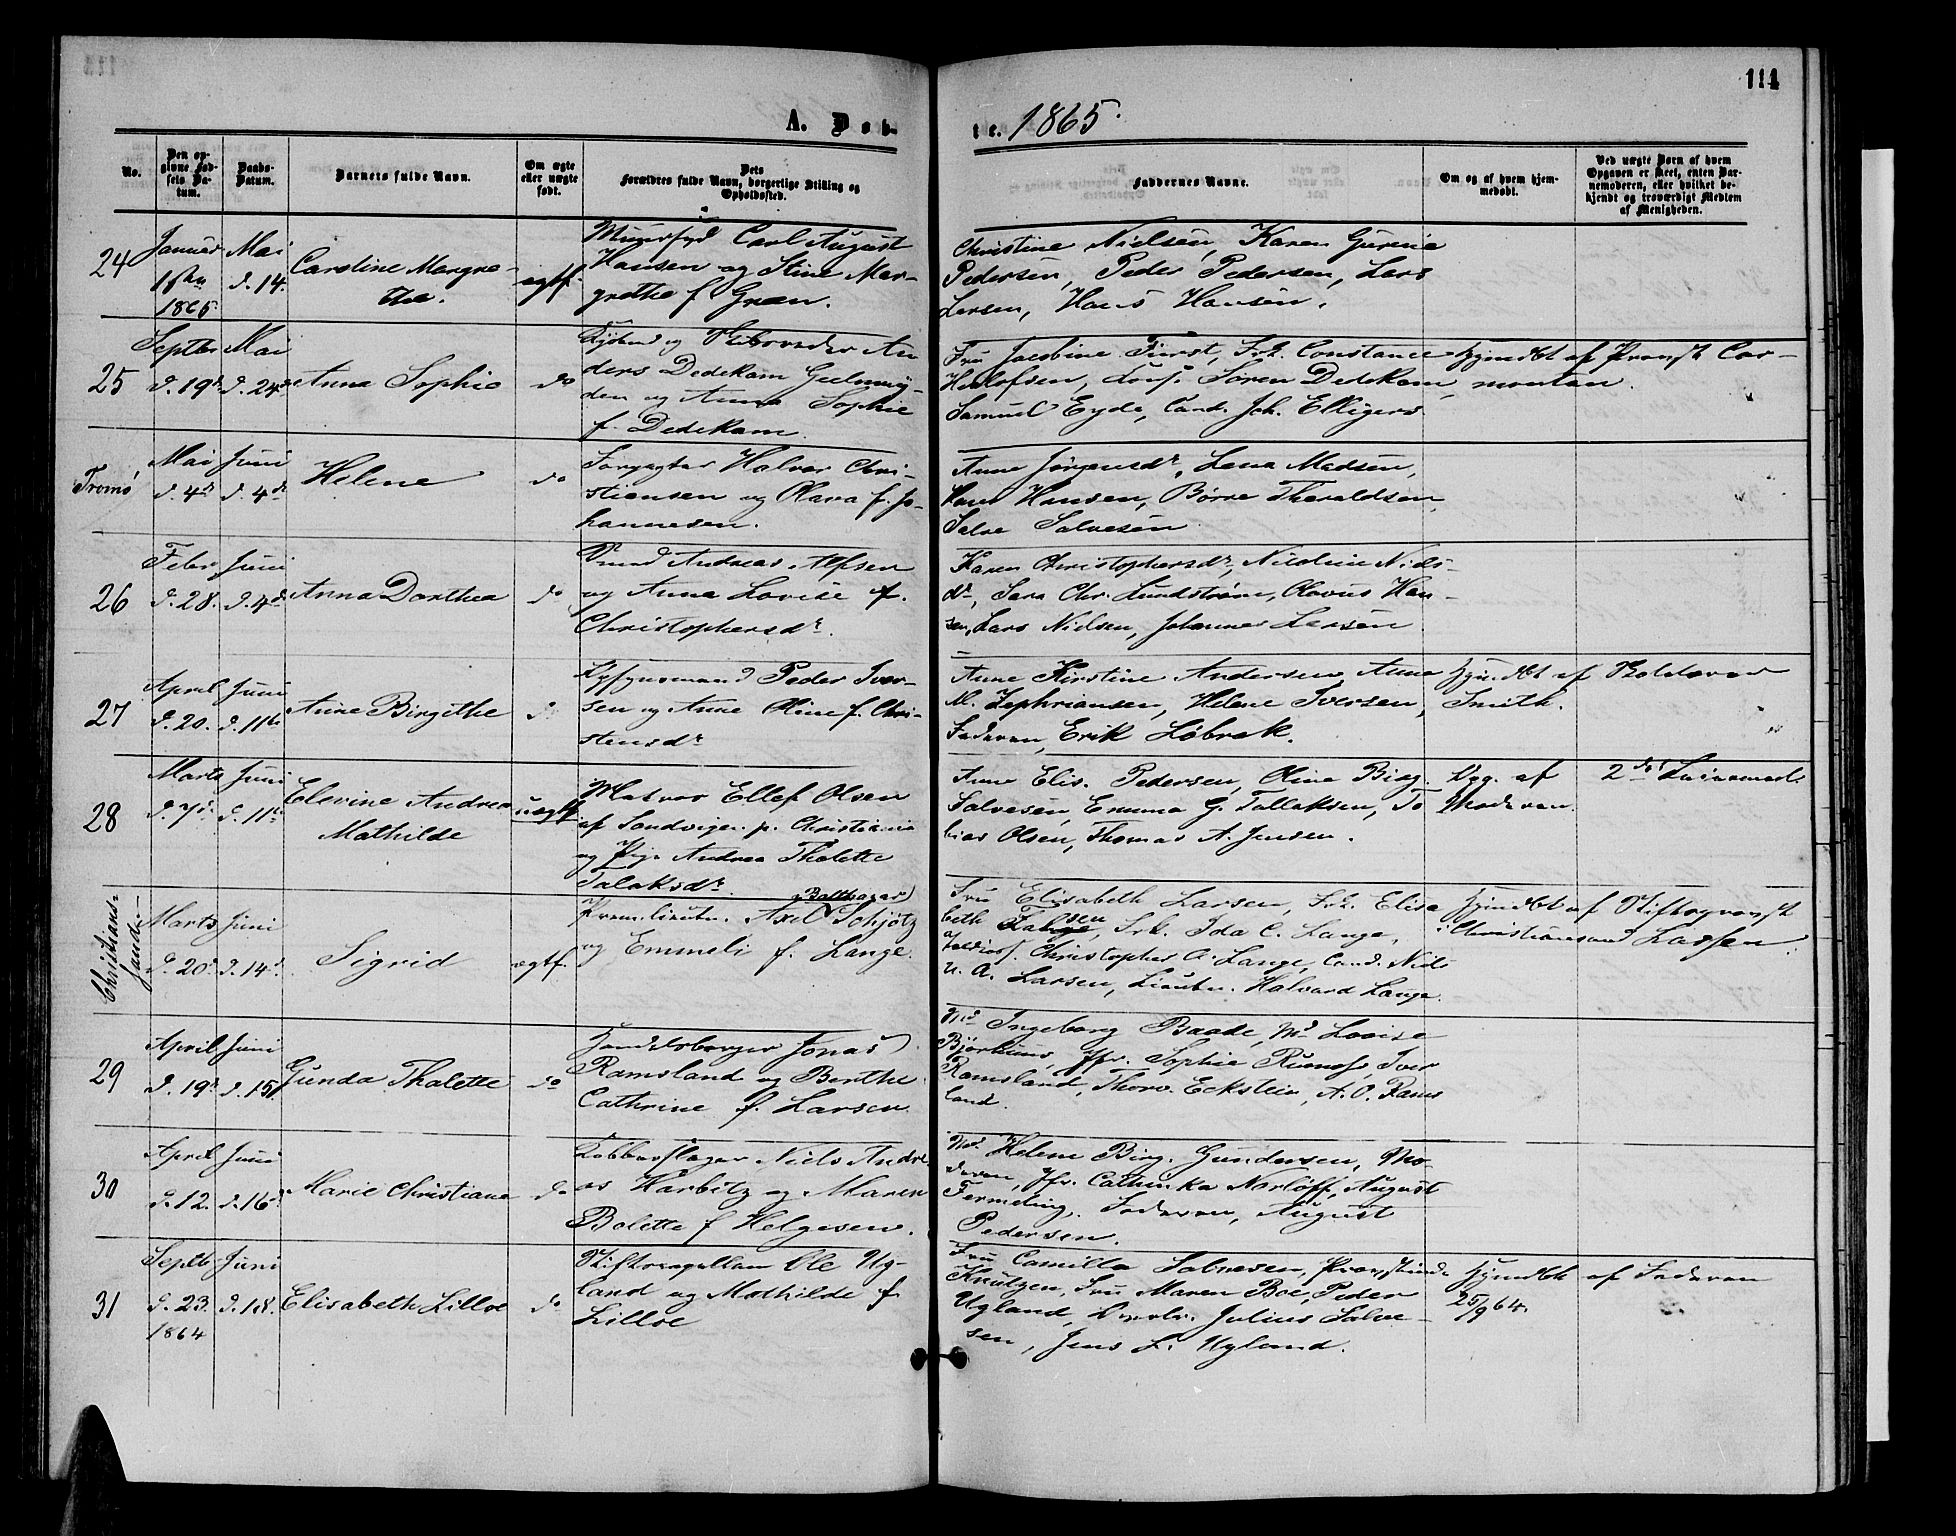 114
A. Døb-
te. 1865.
No.
Den opgivne Fødsels Datum.
Daabs-Datum.
Barnets fulde Navn.
Om ægte eller uægte født.
Dets Forældres fulde Navn, borgerlige Stilling og Opholdssted.
Faddernes Navne.
Om og af hvem hjemmedøbt.
Ved uægte Børn af hvem Opgaven er skeet, enten Barnemoderen, eller hvilket bekjendt og troværdigt Medlem af Menigheden.
24
Januar
1865.
Mai
d. 14.
Caroline Margre-
the.
ægtf.
Carl August
Hansen og Stine Mar-
grethe f. Græn.
Christine Nielsen, Karen Gurine
Pedersen, Peder Pedersen, Lars
Larsen, Hans Hansen.
25
Septbr
d. 19d
Mai
d. 24de
Anna Sophie
do
An
ders Dedekam
den og Anna Sophie
f. Dedekam.
Fru Jacobine Fürst, Frk. Constance
Søren Dedekam,
Samuel Eyde, Cand. Joh. Elligers
Hjmdbt af Provst Cor-
montan.
Tromø
Mai
d. 4d
Juni
d. 4de
Helene
do
Halvor Chri-
stiansen og Olava f. Jo-
hannesen.
Anne Jørgensdr, Lena Madsen,
Hans Hansen, Børre Theraldsen,
Salve Salvesen
26
Febr
d. 28.
Juni
d. 4de
Anna Dorthea
do
Andreas Alfsen
og Anne Lovise f.
Christophersdr.
Karen Christophersdr, Nicoline Niels-
dr, Sara Chr. Lundstrøm, Olavus Han-
sen, Lars Nielsen, Johannes Larsen
27
April
d. 20.
Juni
d. 11te
Anne Birgithe
do
Peder Iver-
sen og Anne Oline f. Chri-
stensdr
Anne Kirstine Andersen, Anne
M. Zephriansen, Helene Iversen,
Faderen, Erik Løbrak.
Hjmdbt af
Smith.
28
Marts
d. 7de
Juni
d. 11te
Elevine Andrea
Mathilde
uægtf
Matros Ellef Olsen
af Sandvigen p. Christiania
og Pige Andrea Thalette
Talaksdr.
Anne Elis. Pedersen, Oline Birg.
Salvesen, Emma G. Tallaksen, To
bias Olsen, Thomas A. Jensen.
Opg. af
Moderen.
2det Leiermaal
Christians-
sand.
Marts
d. 20d
Juni
d. 14d
Sigrid
ægtf.
Balthazar
Premlieutn. Axel Schjøtz
og Emmeli f. Lange.
Fru Elisabeth Larsen, Frk. Elisa
beth Falsen, Frk. Ida C. Lange,
Christopher A. Lange, Cand. Niels
u. A. Larsen, Lieutn. Halvard Lange.
Hjmdbt af Stiftsprovst
i Christianssand Larssen.
29
April
d. 19d
Juni
d. 15d
Gunda Thalette
do
Handelsborger Jonas
Ramsland og Berthe
Cathrine f. Larsen
Md Ingeborg Baade, Md Lovise
Bjorkuus, Jfr. Sophie Iver
Ramsland, Thorv. Eckstein, A. O. Rams
land.
30
April
d. 12.
Juni
d. 16d
Marie Christiane
do
Kobberslager Niels Andre
as Harbitz og Maren
Bolette f Helgesen.
Md Helene Birg. Gundersen, Mo-
deren, Jfr. Cathinka Norløff, August
Termeling, Faderen, August
Pedersen.
31
Septb
d. 23.
1864
Juni
d. 18.
Elisabeth Lilloe
do
Ole Ug-
land og Mathilde f.
Lilloe
Fru Camilla Salvesen, Provstinde
Knutzen, Fru Maren Boe, Peder
Ugland, Julius Salve-
sen, Jens L. Ugland.
Hjmdbt af Faderen
25/9 64.